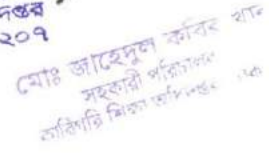 দপ্তর
২০৭
মোঃ জাহেদুল কবির খান
সহকারী পরিচালক
কারিগরি শিক্ষা অধিদপ্তর